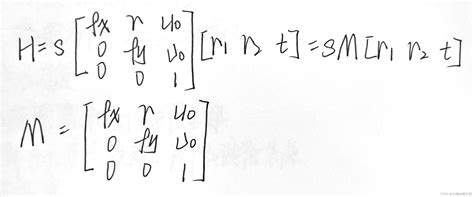 H=s [fx r u0; 0 fy v0; 0 0 1] [r1 r2 t]=sM[r1 r2 t]
M=[fx r u0; 0 fy v0; 0 0 1]